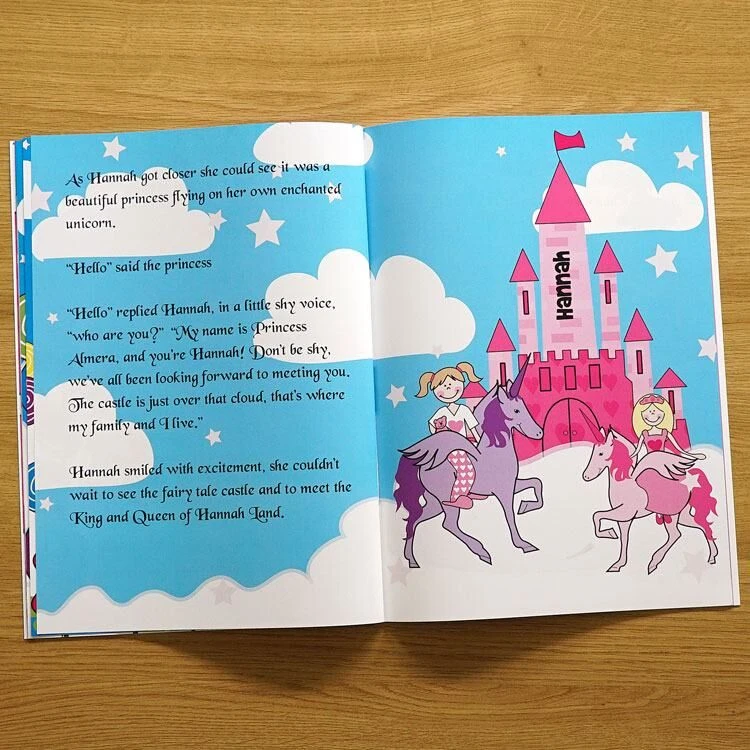 As Hannah got closer she could see it was a
beautiful princess flying on her own enchanted
unicorn.
“Hello” said the princess
“Hello” replied Hannah, in a little shy voice,
“who are you?” “My name is Princess
Almera, and you're Hannah! Don't be shy,
we've all been looking forward to meeting you.
The castle is just over that cloud, that's where
my family and I live.”
Hannah smiled with excitement, she couldn't
wait to see the fairy tale castle and to meet the
King and Queen of Hannah Land.
Hannah